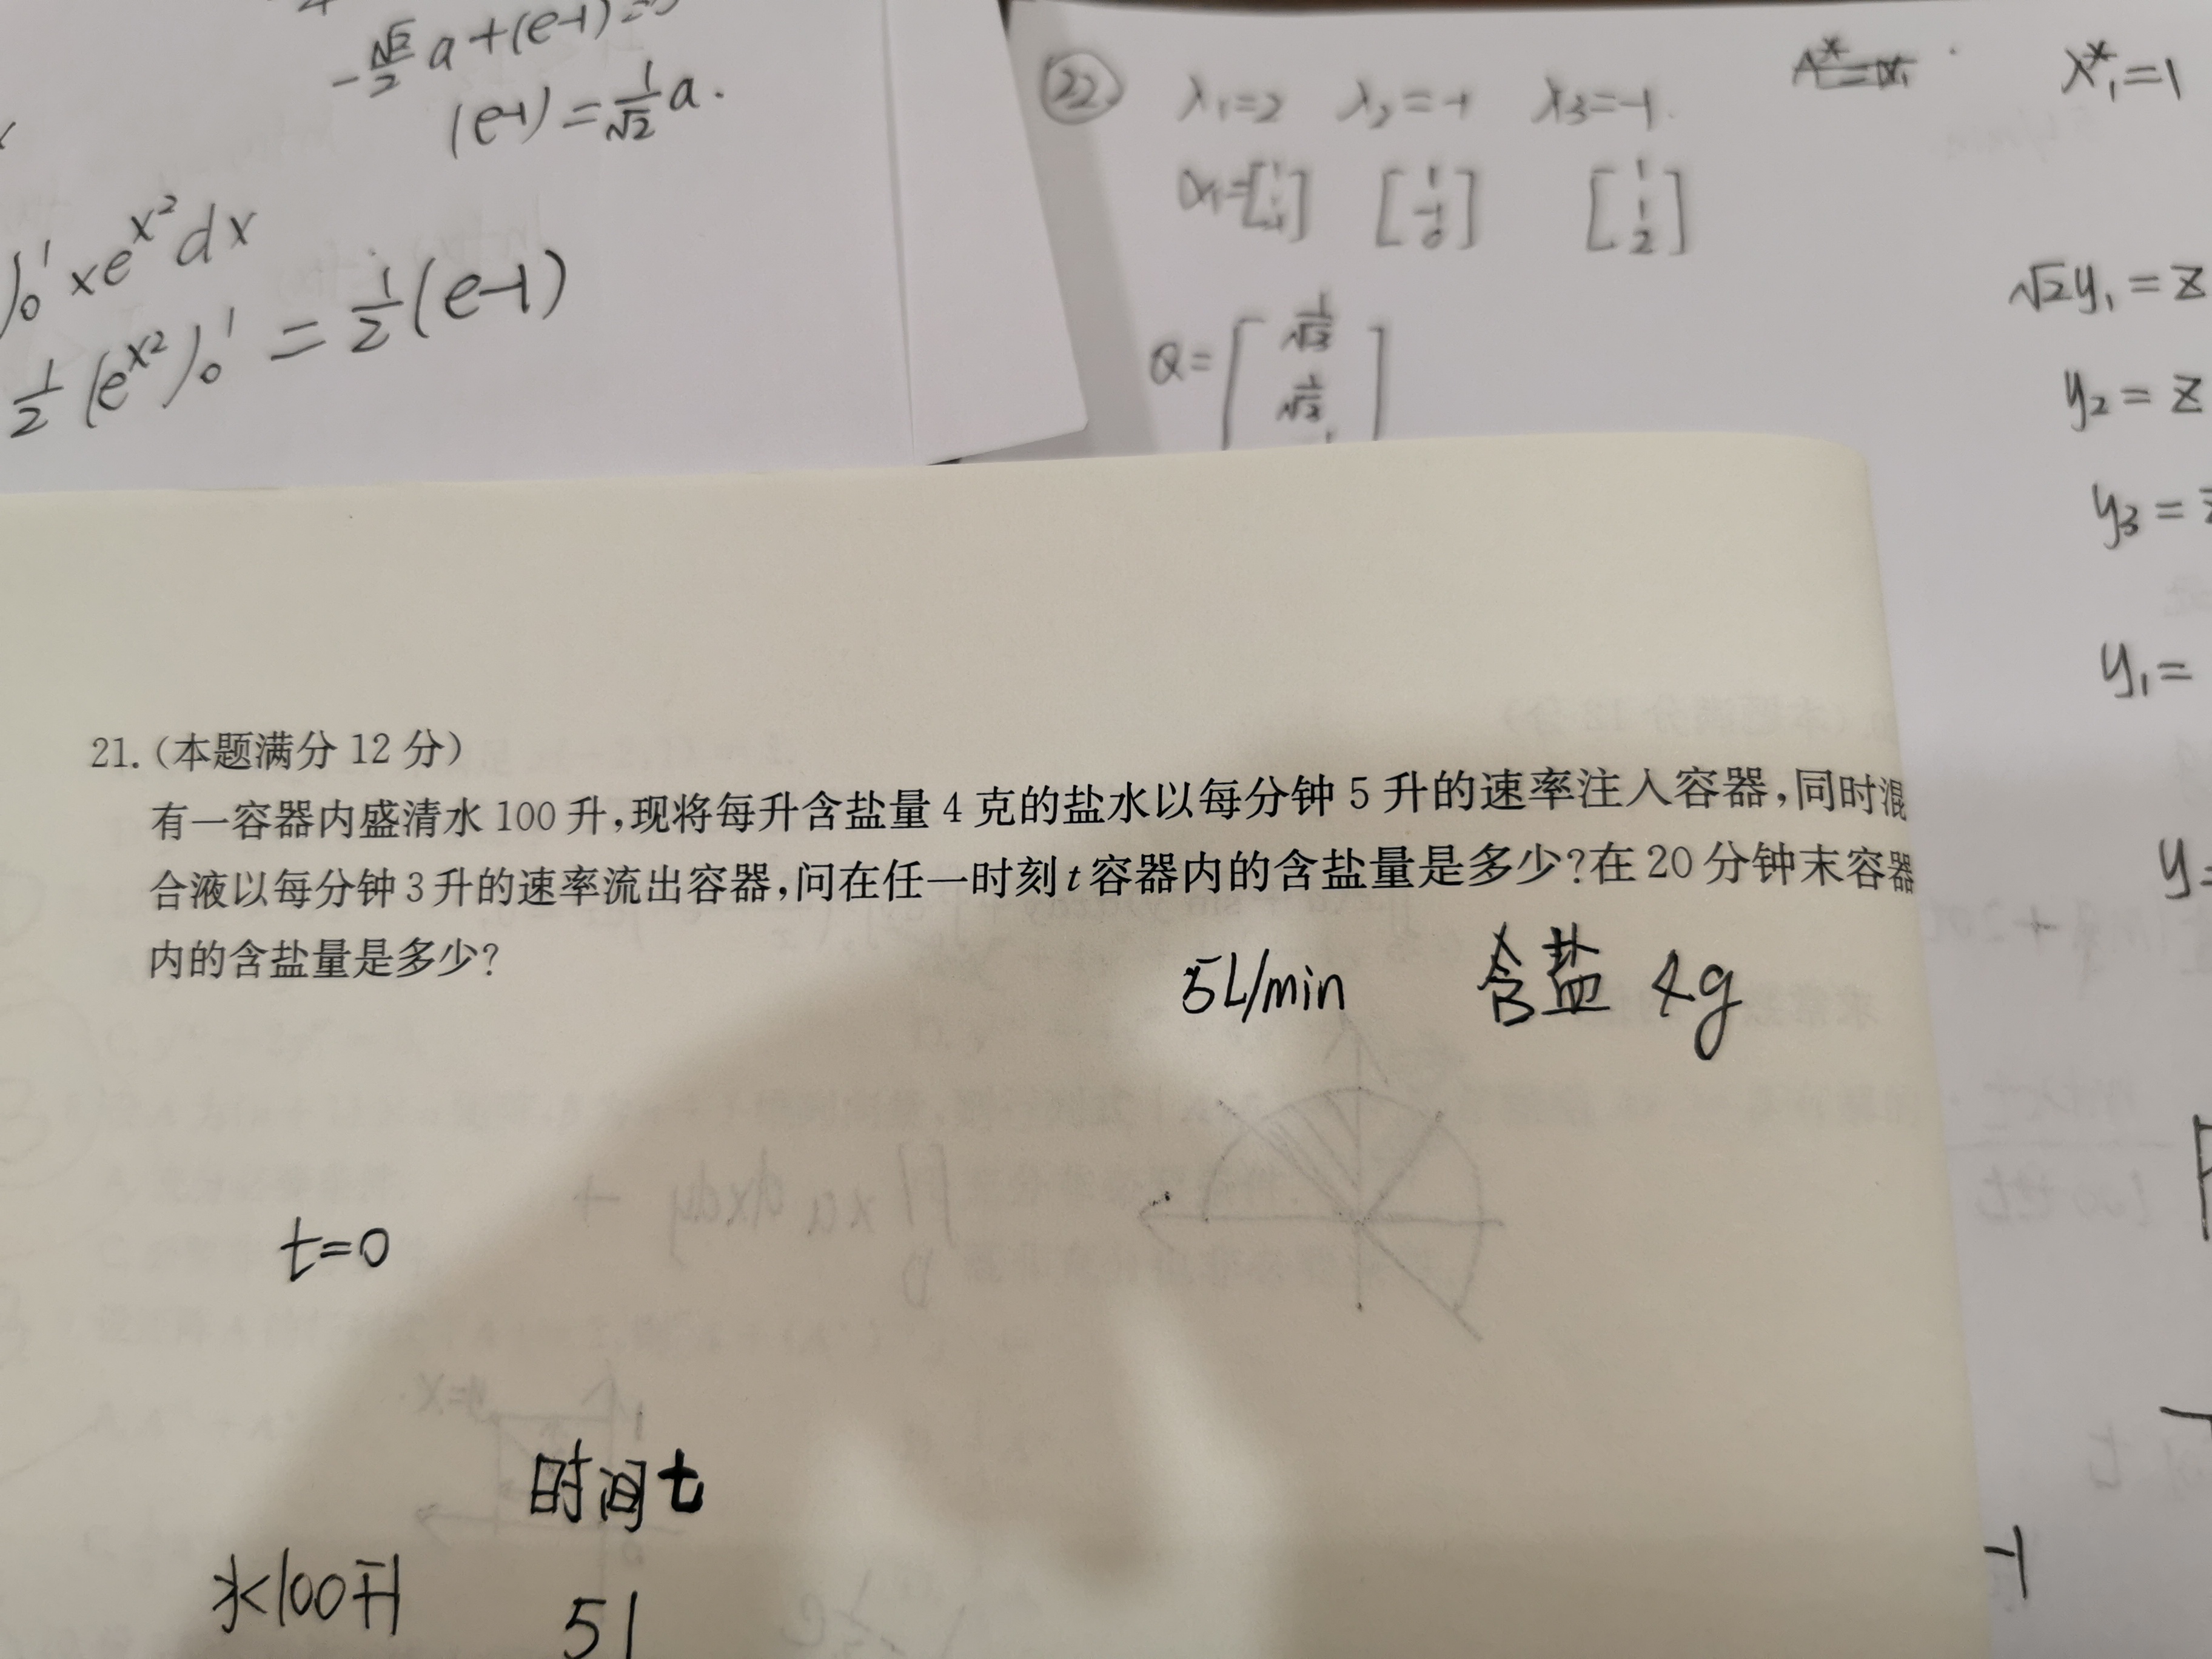 -√2/2 a+(e-1)=0
(e-1)=1/√2 a.
∫₀¹ xe^x² dx
1/2 (e^x²)₀¹ = 1/2(e-1)
㉒ λ₁=2 λ₂=-1 λ₃=-1.
λ*₁=1
Q=
√2y₁=z
y₂=z
y₃=
y₁=
21.(本题满分 12 分)
有一容器内盛清水 100 升,现将每升含盐量 4 克的盐水以每分钟 5 升的速率注入容器,同时混
合液以每分钟 3 升的速率流出容器,问在任一时刻 t 容器内的含盐量是多少?在 20 分钟末容器
内的含盐量是多少?
5L/min 含盐 4g
t=0
时间t
水100升
-1